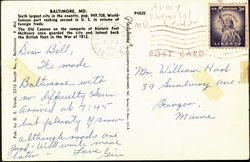 BALTIMORE, MD.
Sixth largest city in the country, pop. 949,708. World-
famous port ranked second in U. S. in volume of
foreign trade.
The Old Cannon on the ramparts at Historic Fort
McHenry once guarded the city and turned back
the British fleet in the War of 1812.
P4820
Army
Chemical
MD
POST CARD
Dear Bill,
We made
Baltimore with
no difficulty
arrived at 7:45
but plenty of snow
although roads are
good. Will write more
later Love
Mr. William Hood
59 Sunbury Ave.
Bangor,
Maine